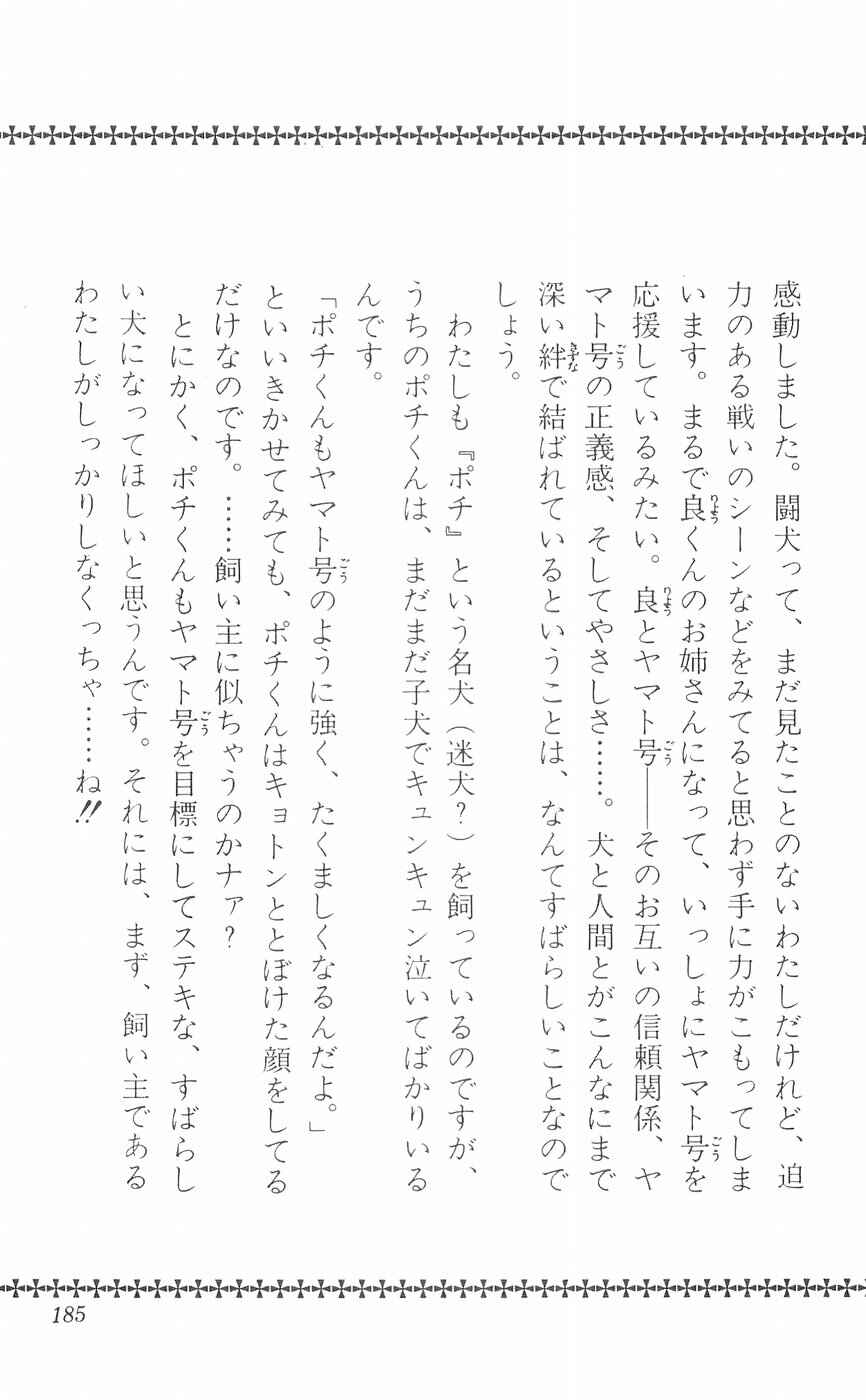 感動しました。闘犬って、まだ見たことのないわたしだけれど、迫
力のある戦いのシーンなどをみてると思わず手に力がこもってしま
います。まるで良くんのお姉さんになって、いっしょにヤマト号を
応援しているみたい。良とヤマト号――そのお互いの信頼関係、ヤ
マト号の正義感、そしてやさしさ……。犬と人間とがこんなにまで
深い絆で結ばれているということは、なんてすばらしいことなので
しょう。
　わたしも『ポチ』という名犬（迷犬？）を飼っているのですが、
うちのポチくんは、まだまだ子犬でキュンキュン泣いてばかりいる
んです。
「ポチくんもヤマト号のように強く、たくましくなるんだよ。」
といいきかせてみても、ポチくんはキョトンととぼけた顔をしてる
だけなのです。……飼い主に似ちゃうのかナァ？
　とにかく、ポチくんもヤマト号を目標にしてステキな、すばらし
い犬になってほしいと思うんです。それには、まず、飼い主である
わたしがしっかりしなくっちゃ……ね!!
185